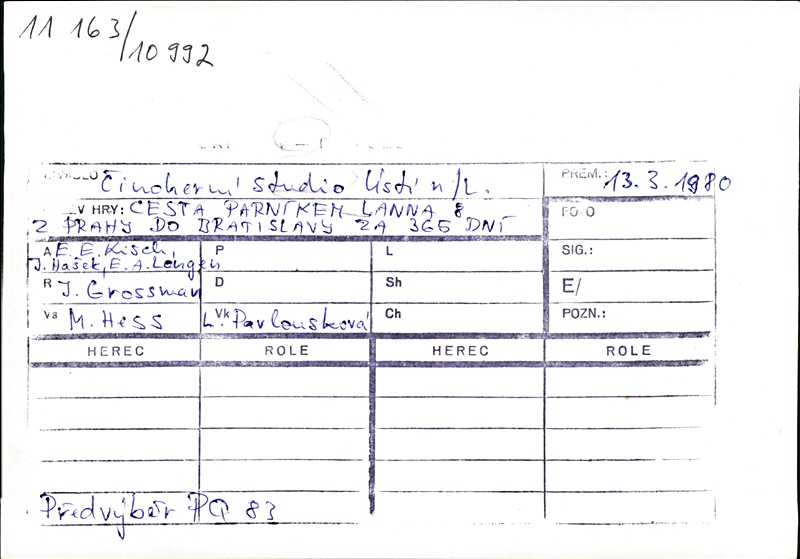 11 163/10 992
DIVADLO Činoherní studio Ústí n/L. PREM.: 13.3.1980
V HRY: CESTA PARNÍKEM LANNA 8 FOTO
Z PRAHY DO BRATISLAVY ZA 365 DNÍ
A E. E. Kisch, P L SIG.:
J. Hašek, E. A. Longen
R J. Grossman D Sh E/
Vs M. Hess Vk L. Pavlousková Ch POZN.:
HEREC ROLE HEREC ROLE
Předvýběr PQ 83